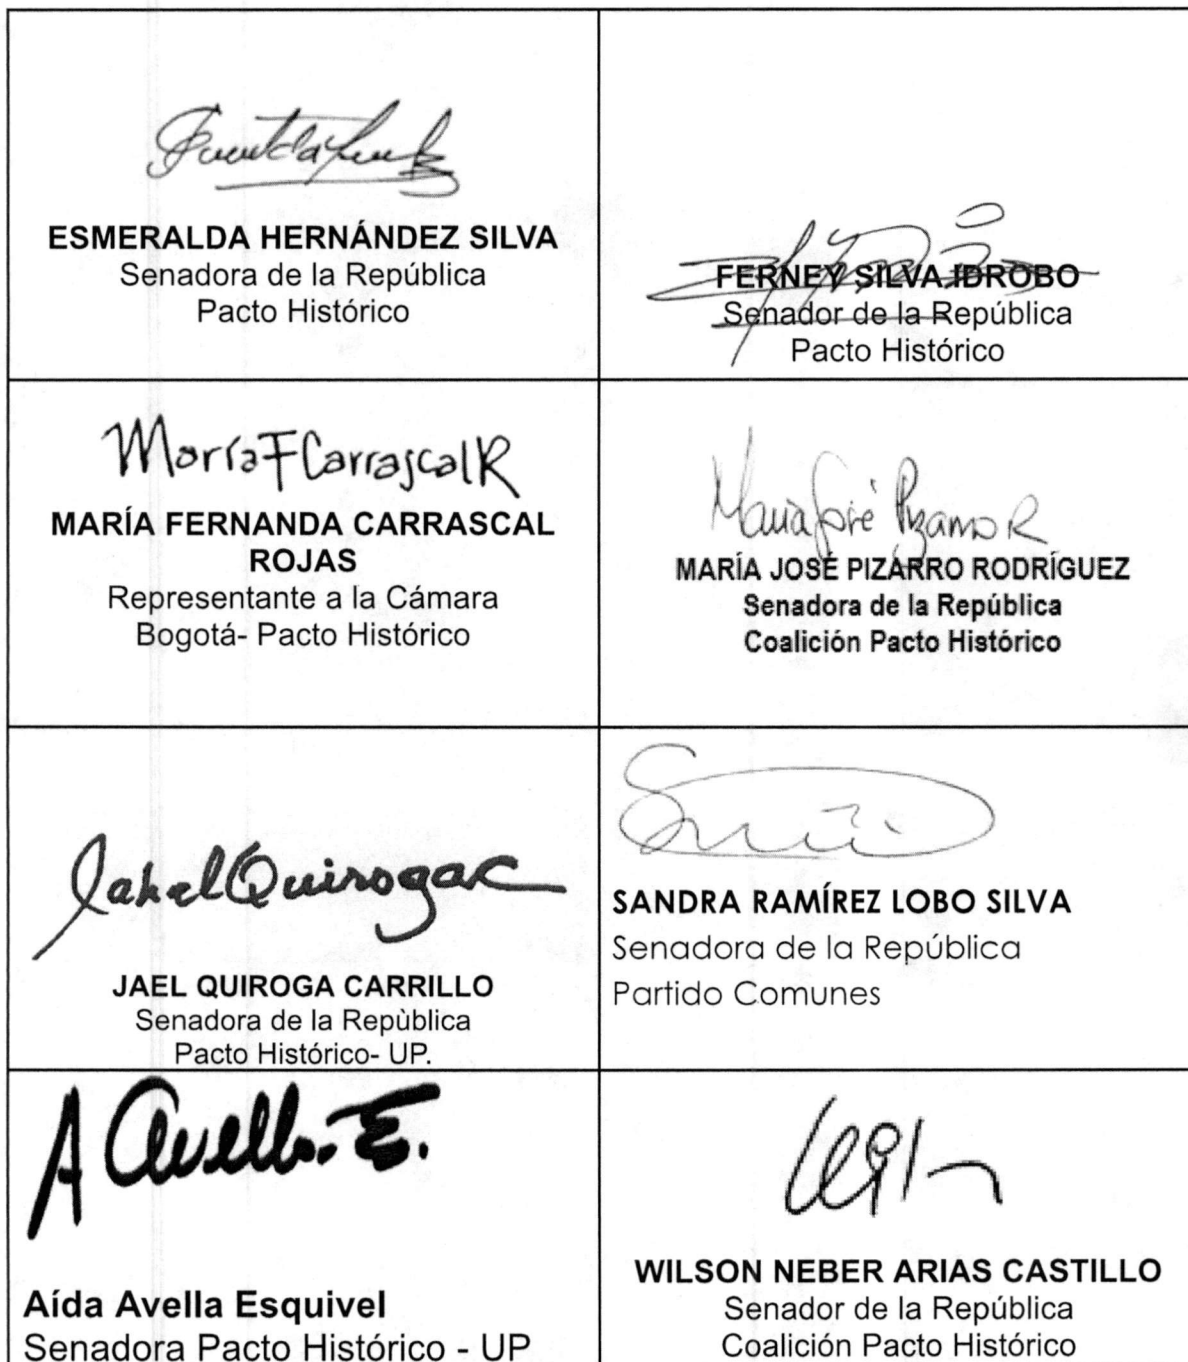 ESMERALDA HERNÁNDEZ SILVA
Senadora de la República
Pacto Histórico
FERNEY SILVA IDROBO
Senador de la República
Pacto Histórico
María F Carrascal R
MARÍA FERNANDA CARRASCAL
ROJAS
Representante a la Cámara
Bogotá- Pacto Histórico
María José Pizarro R
MARÍA JOSÉ PIZARRO RODRÍGUEZ
Senadora de la República
Coalición Pacto Histórico
Jahel Quiroga C
JAEL QUIROGA CARRILLO
Senadora de la Repùblica
Pacto Histórico- UP.
SANDRA RAMÍREZ LOBO SILVA
Senadora de la República
Partido Comunes
A Avella. E.
Aída Avella Esquivel
Senadora Pacto Histórico - UP
WILSON NEBER ARIAS CASTILLO
Senador de la República
Coalición Pacto Histórico